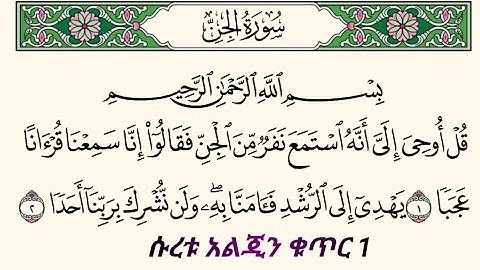 سُورَةُ الجِنِّ
بِسْمِ اللَّهِ الرَّحْمَٰنِ الرَّحِيمِ
قُلْ أُوحِىَ إِلَىَّ أَنَّهُ ٱسْتَمَعَ نَفَرٌ مِّنَ ٱلْجِنِّ فَقَالُوٓا۟ إِنَّا سَمِعْنَا قُرْءَانًا
عَجَبًا ١ يَهْدِىٓ إِلَى ٱلرُّشْدِ فَـَٔامَنَّا بِهِۦ ۖ وَلَن نُّشْرِكَ بِرَبِّنَآ أَحَدًا ٢
ሱረቱ አልጂን ቁጥር 1